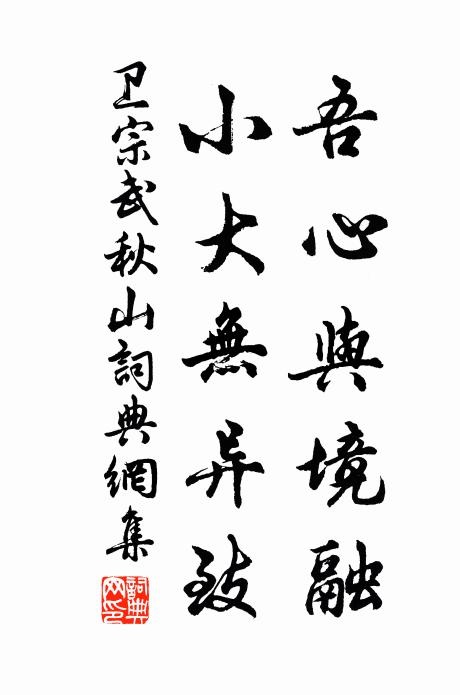 吾心與境融
小大無异致
卫宗武秋山詞典網集
詞典網印